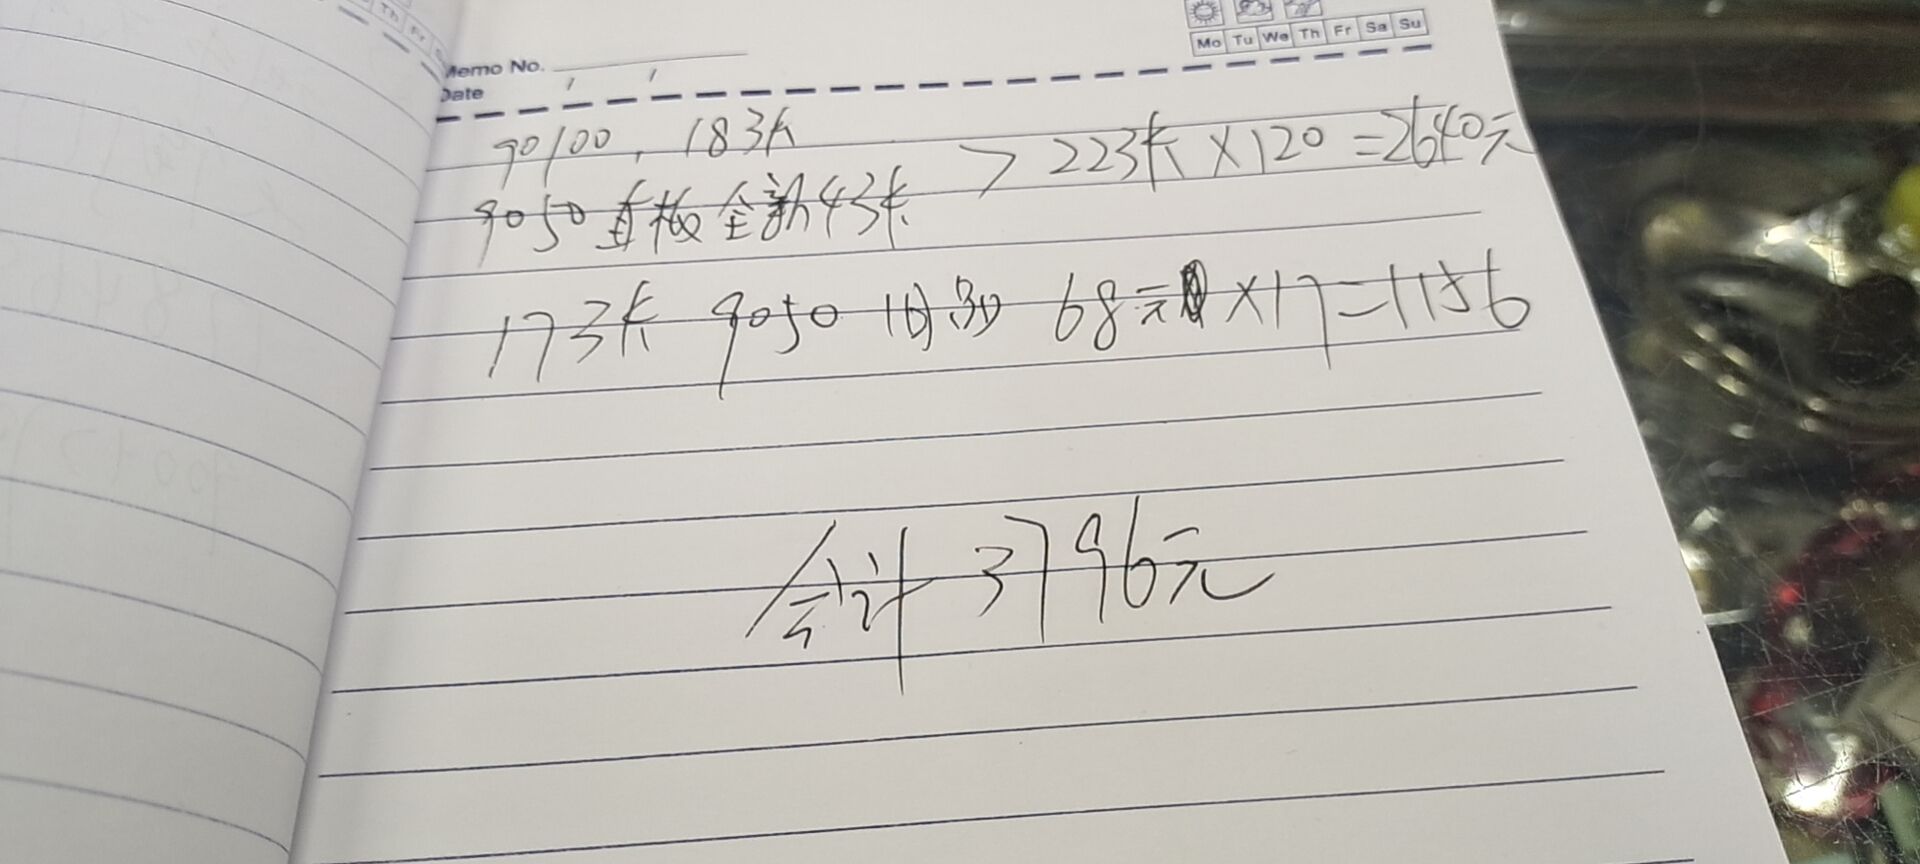 Th Fr
Mo Tu We Th Fr Sa Su
Memo No.
Date
90100, 18张
9050直板全新4张
> 22张×120=2640元
17张 9050旧 68元×17=1156
合计3796元